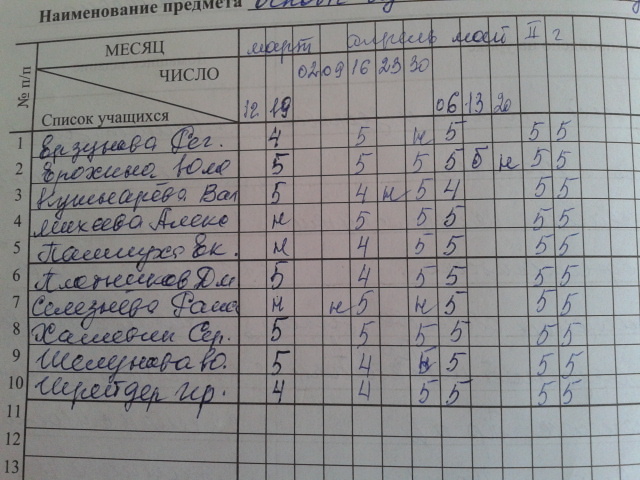 Наименование предмета
МЕСЯЦ март апрель май II г
№ п/п ЧИСЛО 02 09 16 23 30
Список учащихся 12 19 06 13 20
1 Рег. 4 5 н 5 5 5
2 Ерохина Юля 5 5 5 5 5 н 5 5
3 Кушнарёва Вал 5 4 н 5 4 5 5
4 Михеева Алекс н 5 5 5 5 5
5 Ек. н 4 5 5 5 5
6 Плотников Дм 5 4 5 5 5 5
7 Селезнёва н н 5 н 5 5 5
8 Сер. 5 5 5 5 5 5
9 Ю. 5 4 5 5 5
10 Шрейдер Ир. 4 4 5 5 5 5
11
12
13